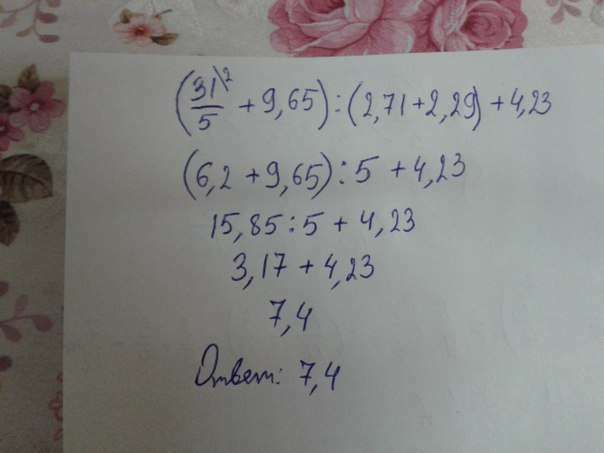 (31/5)² + 9,65) : (2,71 + 2,29) + 4,23
(6,2 + 9,65) : 5 + 4,23
15,85 : 5 + 4,23
3,17 + 4,23
7,4
Ответ: 7,4